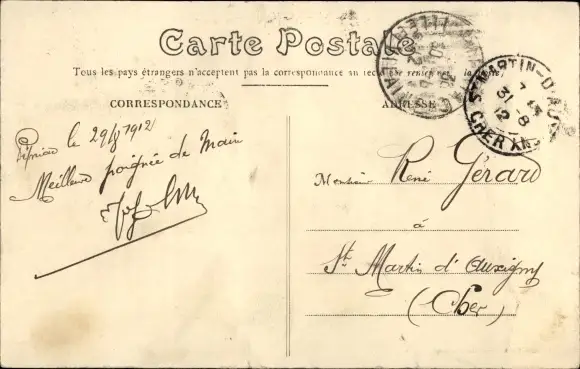 Carte Postale
Tous les pays étrangers n'acceptent pas la correspondance au recto
CORRESPONDANCE
ADRESSE
ST MARTIN-D'AUX
31 - 8
12
CHER
le 29/8 1912
Meilleure poignée de Main
Monsieur René Gérard
à
St. Martin d'Auxigny
(Cher)